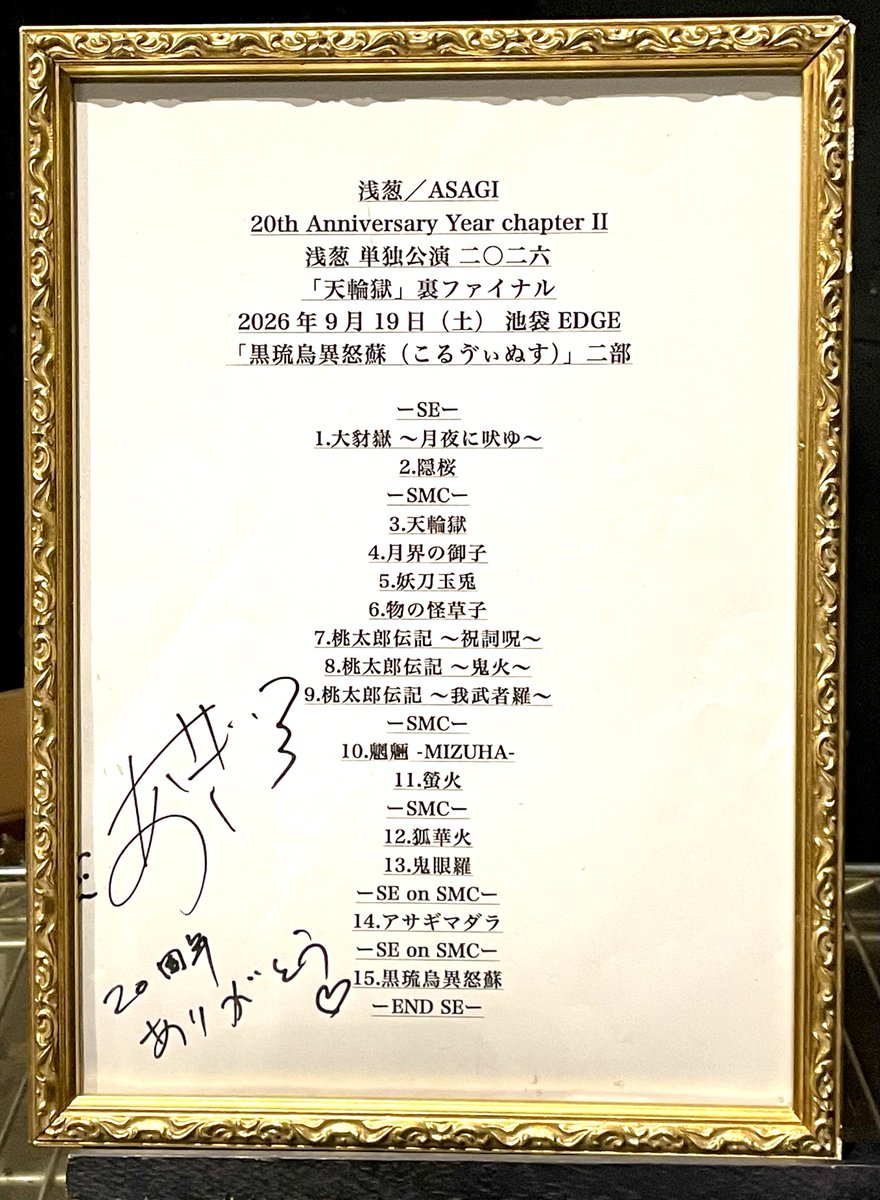 浅葱／ASAGI
20th Anniversary Year chapter II
浅葱 単独公演 二〇二六
「天輪獄」裏ファイナル
2026年9月19日（土） 池袋EDGE
「黒琉烏異怒蘇（こるゔぃぬす）」二部
ーSEー
1.大豺嶽 〜月夜に吠ゆ〜
2.隠桜
ーSMCー
3.天輪獄
4.月界の御子
5.妖刀玉兎
6.物の怪草子
7.桃太郎伝記 〜祝詞呪〜
8.桃太郎伝記 〜鬼火〜
9.桃太郎伝記 〜我武者羅〜
ーSMCー
10.魍魎 -MIZUHA-
11.螢火
ーSMCー
12.狐華火
13.鬼眼羅
ーSE on SMCー
14.アサギマダラ
ーSE on SMCー
15.黒琉烏異怒蘇
ーEND SEー
20周年
ありがとう♡